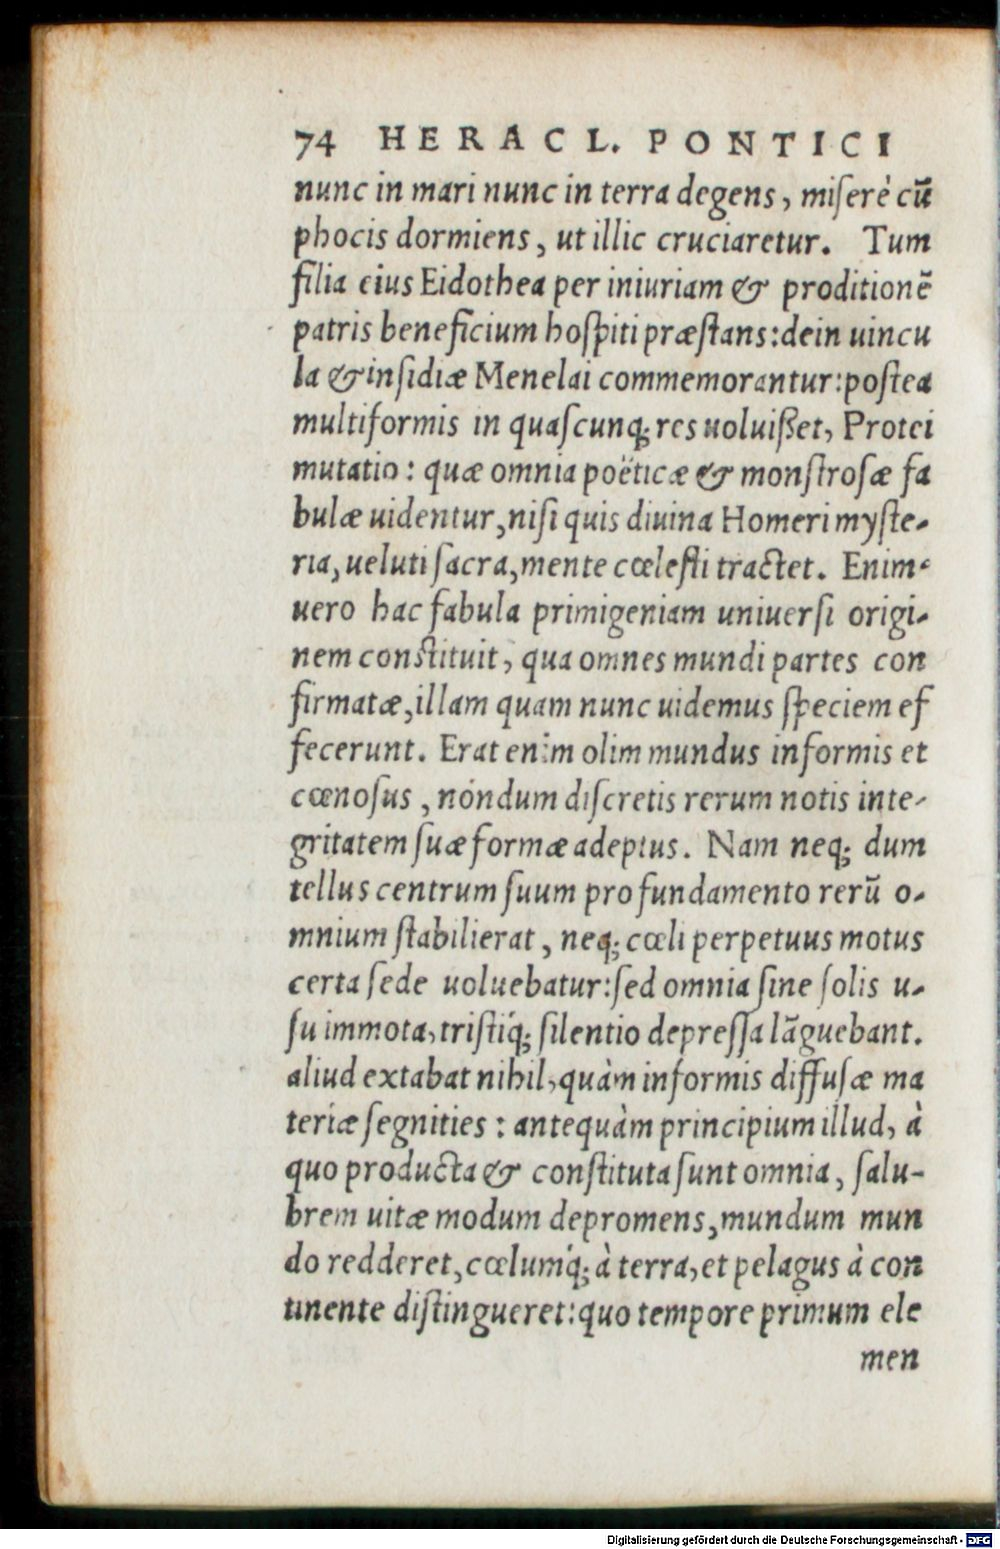 74 HERACL. PONTICI
nunc in mari nunc in terra degens, miſerè cū
phocis dormiens, ut illic cruciaretur. Tum
filia eius Eidothea per iniuriam & proditionē
patris beneficium hoſpiti præſtans:dein uincu
la & inſidiæ Menelai commemorantur:poſtea
multiformis in quaſcunq; res uoluiſſet, Protei
mutatio: quæ omnia poëticæ & monſtroſæ fa
bulæ uidentur,niſi quis diuina Homeri myſte-
ria,ueluti ſacra,mente cœleſti tractet. Enim-
uero hac fabula primigeniam uniuerſi origi-
nem conſtituit, qua omnes mundi partes con
firmatæ,illam quam nunc uidemus ſpeciem ef
fecerunt. Erat enim olim mundus informis et
cœnoſus, nóndum diſcretis rerum notis inte-
gritatem ſuæ formæ adeptus. Nam neq; dum
tellus centrum ſuum pro fundamento rerū o-
mnium ſtabilierat, neq; cœli perpetuus motus
certa ſede uoluebatur:ſed omnia ſine ſolis u-
ſu immota,triſtiq́; ſilentio depreſſa lāguebant.
aliud extabat nihil,quàm informis diffuſæ ma
teriæ ſegnities: antequàm principium illud, à
quo producta & conſtituta ſunt omnia, ſalu-
brem uitæ modum depromens,mundum mun
do redderet,cœlumq́; à terra,et pelagus à con
tinente diſtingueret:quo tempore primum ele
men
Digitalisierung gefördert durch die Deutsche Forschungsgemeinschaft - DFG